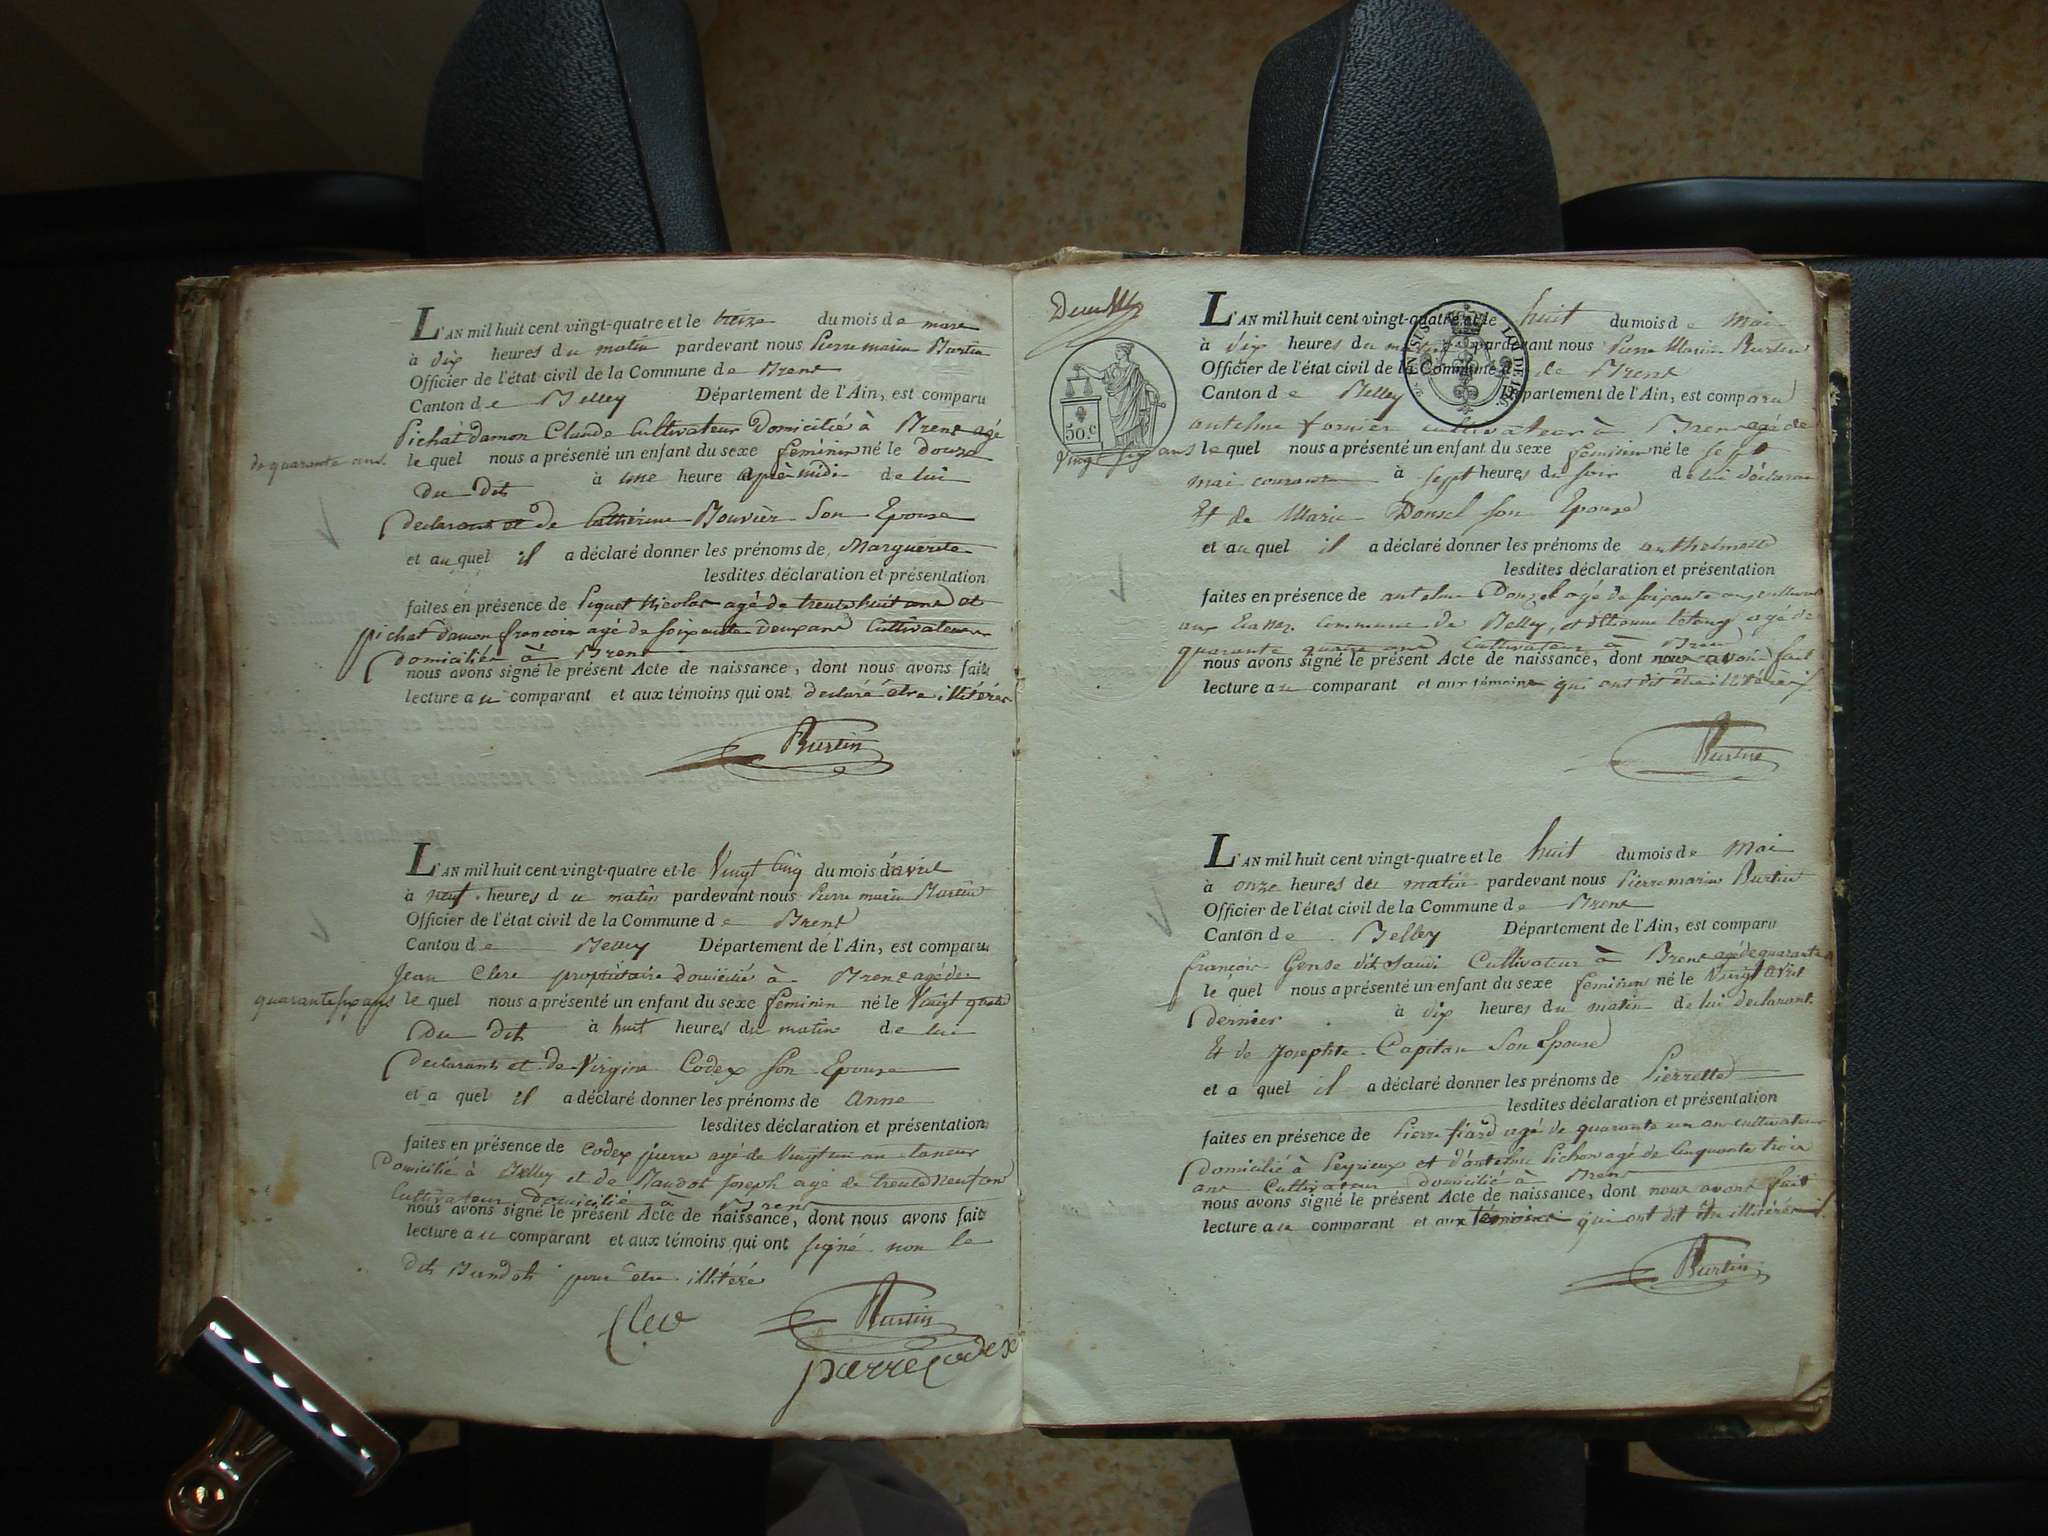 L'AN mil huit cent vingt-quatre et le treize du mois de mars
à dix heures du matin pardevant nous Pierre marin Burtin
Officier de l'état civil de la Commune de Brens
Canton de Belley Département de l'Ain, est comparu
Pichat damon Claude Cultivateur Domicilié à Brens agé
de quarante ans
le quel nous a présenté un enfant du sexe féminin né le Douze
Du dit à une heure après midi de lui
Declarant et de Catherine Bouvier Son Epouse
et au quel il a déclaré donner les prénoms de Marguerite
lesdites déclaration et présentation
faites en présence de Piquet Nicolas agé de trente huit ans et
pichat damon françois agé de soixante Deux ans Cultivateurs
domiciliés à Brens
nous avons signé le présent Acte de naissance, dont nous avons fait
lecture au comparant et aux témoins qui ont declaré être illitérés
Burtin
L'AN mil huit cent vingt-quatre et le Vingt Cinq du mois d'avril
à neuf heures du matin pardevant nous Pierre marin Burtin
Officier de l'état civil de la Commune de Brens
Canton de Belley Département de l'Ain, est comparu
Jean Clerc propriétaire domicilié à Brens agé de
quarante six ans le quel nous a présenté un enfant du sexe féminin né le Vingt quatre
Du dit à huit heures du matin de lui
Declarant et de Virginie Codex son Epouse
et a quel il a déclaré donner les prénoms de Anne
lesdites déclaration et présentation
faites en présence de Codex pierre agé de Vingt un an taneur
Domicilié à Belley et de Baudot Joseph agé de trente neuf ans
Cultivateur domicilié à Brens
nous avons signé le présent Acte de naissance, dont nous avons fait
lecture au comparant et aux témoins qui ont signé non le
dit Baudot pour être illitéré
Clerc Burtin
pierre codex
L'AN mil huit cent vingt-quatre et le huit du mois de Mai
à dix heures du matin pardevant nous Pierre Marin Burtin
Officier de l'état civil de la Commune de Brens
Canton de Belley Département de l'Ain, est comparu
50.c
antelme fornier cultivateur à Brens agé de
Vingt six ans le quel nous a présenté un enfant du sexe féminin né le sept
mai courant à sept heures du soir de lui déclarant
Et de Marie Donzel son Epouse
et au quel il a déclaré donner les prénoms de anthelmette
lesdites déclaration et présentation
faites en présence de antelme Donzel agé de soixante ans cultivateur
aux commune de Belley, et d'Etienne agé de
quarante quatre ans Cultivateur à Brens
nous avons signé le présent Acte de naissance, dont nous avons fait
lecture au comparant et aux témoins qui ont dit être illitérés
Burtin
L'AN mil huit cent vingt-quatre et le huit du mois de Mai
à onze heures du matin pardevant nous Pierre marin Burtin
Officier de l'état civil de la Commune de Brens
Canton de Belley Département de l'Ain, est comparu
françois Cultivateur à Brens agé de quarante
le quel nous a présenté un enfant du sexe féminin né le Vingt avril
dernier à dix heures du matin de lui declarant
Et de Josephte Capitan Son Epouse
et a quel il a déclaré donner les prénoms de Pierrette
lesdites déclaration et présentation
faites en présence de Pierre fiard agé de quarante un an cultivateur
domicilié à Peyrieux et d'antelme Pichon agé de Cinquante trois
ans Cultivateur domicilié à Brens
nous avons signé le présent Acte de naissance, dont nous avons fait
lecture au comparant et aux témoins qui ont dit être illitérés
Burtin